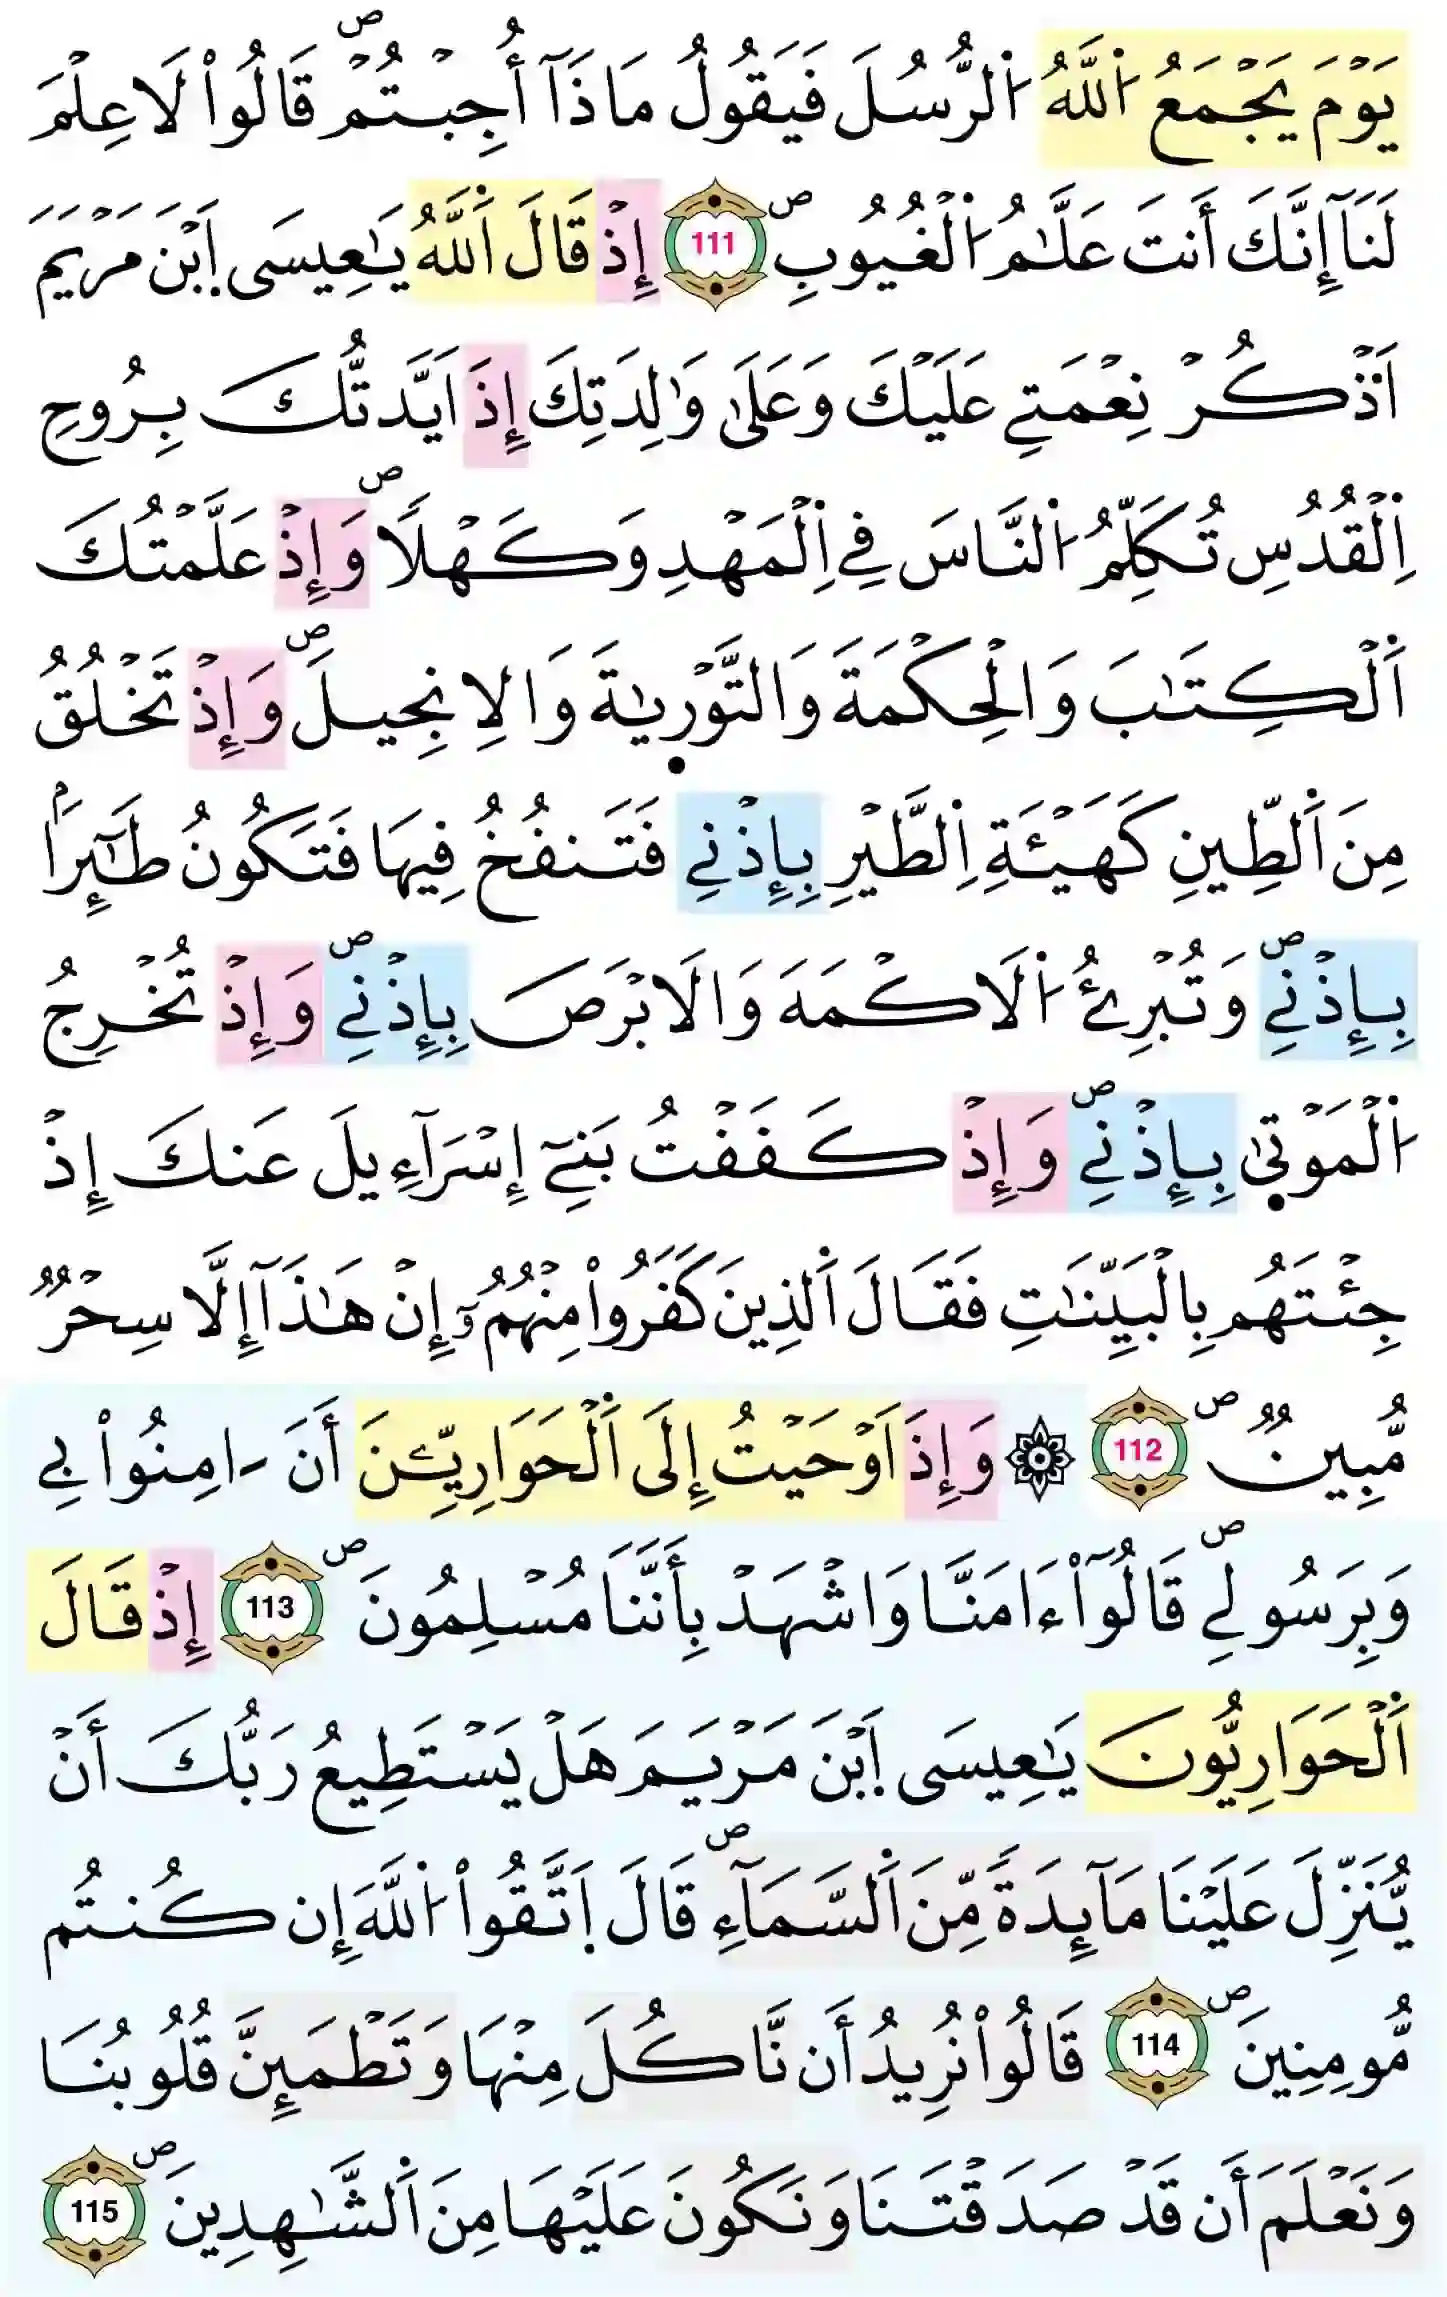 يَوْمَ يَجْمَعُ اُ۬للَّهُ اُ۬لرُّسُلَ فَيَقُولُ مَاذَآ أُجِبْتُمْۖ قَالُواْ لَا عِلْمَ
لَنَآ إِنَّكَ أَنتَ عَلَّٰمُ اُ۬لْغُيُوبِۖ 111 إِذْ قَالَ اَ۬للَّهُ يَٰعِيسَى اَ۪بْنَ مَرْيَمَ
اَ۟ذْكُرْ نِعْمَتِے عَلَيْكَ وَعَلَىٰ وَٰلِدَتِكَ إِذَ اَيَّدتُّكَ بِرُوحِ
اِ۬لْقُدُسِ تُكَلِّمُ اُ۬لنَّاسَ فِے اِ۬لْمَهْدِ وَكَهْلاٗۖ وَإِذْ عَلَّمْتُكَ
اَ۬لْكِتَٰبَ وَالْحِكْمَةَ وَالتَّوْر۪يٰةَ وَالِانجِيلَۖ وَإِذْ تَخْلُقُ
مِنَ اَ۬لطِّينِ كَهَيْـَٔةِ اِ۬لطَّيْرِ بِإِذْنِے فَتَنفُخُ فِيهَا فَتَكُونُ طَٰٓئِراَۢ
بِإِذْنِےۖ وَتُبْرِۓُ اُ۬لَاكْمَهَ وَالَابْرَصَ بِإِذْنِےۖ وَإِذْ تُخْرِجُ
اُ۬لْمَوْت۪ىٰ بِإِذْنِےۖ وَإِذْ كَفَفْتُ بَنِےٓ إِسْرَآءِيلَ عَنكَ إِذْ
جِئْتَهُم بِالْبَيِّنَٰتِ فَقَالَ اَ۬لذِينَ كَفَرُواْ مِنْهُمُۥٓ إِنْ هَٰذَآ إِلَّا سِحْرٞ
مُّبِينٞۖ 112 ۞ وَإِذَ اَوْحَيْتُ إِلَى اَ۬لْحَوَارِيِّـۧنَ أَنَ اٰمِنُواْ بِے
وَبِرَسُولِےۖ قَالُوٓاْ ءَامَنَّا وَاشْهَدْ بِأَنَّنَا مُسْلِمُونَۖ 113 إِذْ قَالَ
اَ۬لْحَوَارِيُّونَ يَٰعِيسَى اَ۪بْنَ مَرْيَمَ هَلْ يَسْتَطِيعُ رَبُّكَ أَنْ
يُّنَزِّلَ عَلَيْنَا مَآئِدَةٗ مِّنَ اَ۬لسَّمَآءِۖ قَالَ اَ۪تَّقُواْ اُ۬للَّهَ إِن كُنتُم
مُّومِنِينَۖ 114 قَالُواْ نُرِيدُ أَن نَّاكُلَ مِنْهَا وَتَطْمَئِنَّ قُلُوبُنَا
وَنَعْلَمَ أَن قَدْ صَدَقْتَنَا وَنَكُونَ عَلَيْهَا مِنَ اَ۬لشَّٰهِدِينَۖ 115